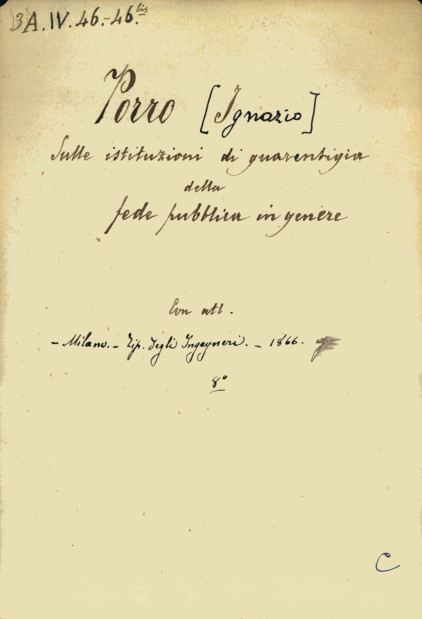 3A.IV.46.-46.bis
Porro [Ignazio]
Sulle istituzioni di guarentigia
della
fede pubblica in genere
Con atl.
- Milano. - Tip. degli Ingegneri. - 1866.
8°
C